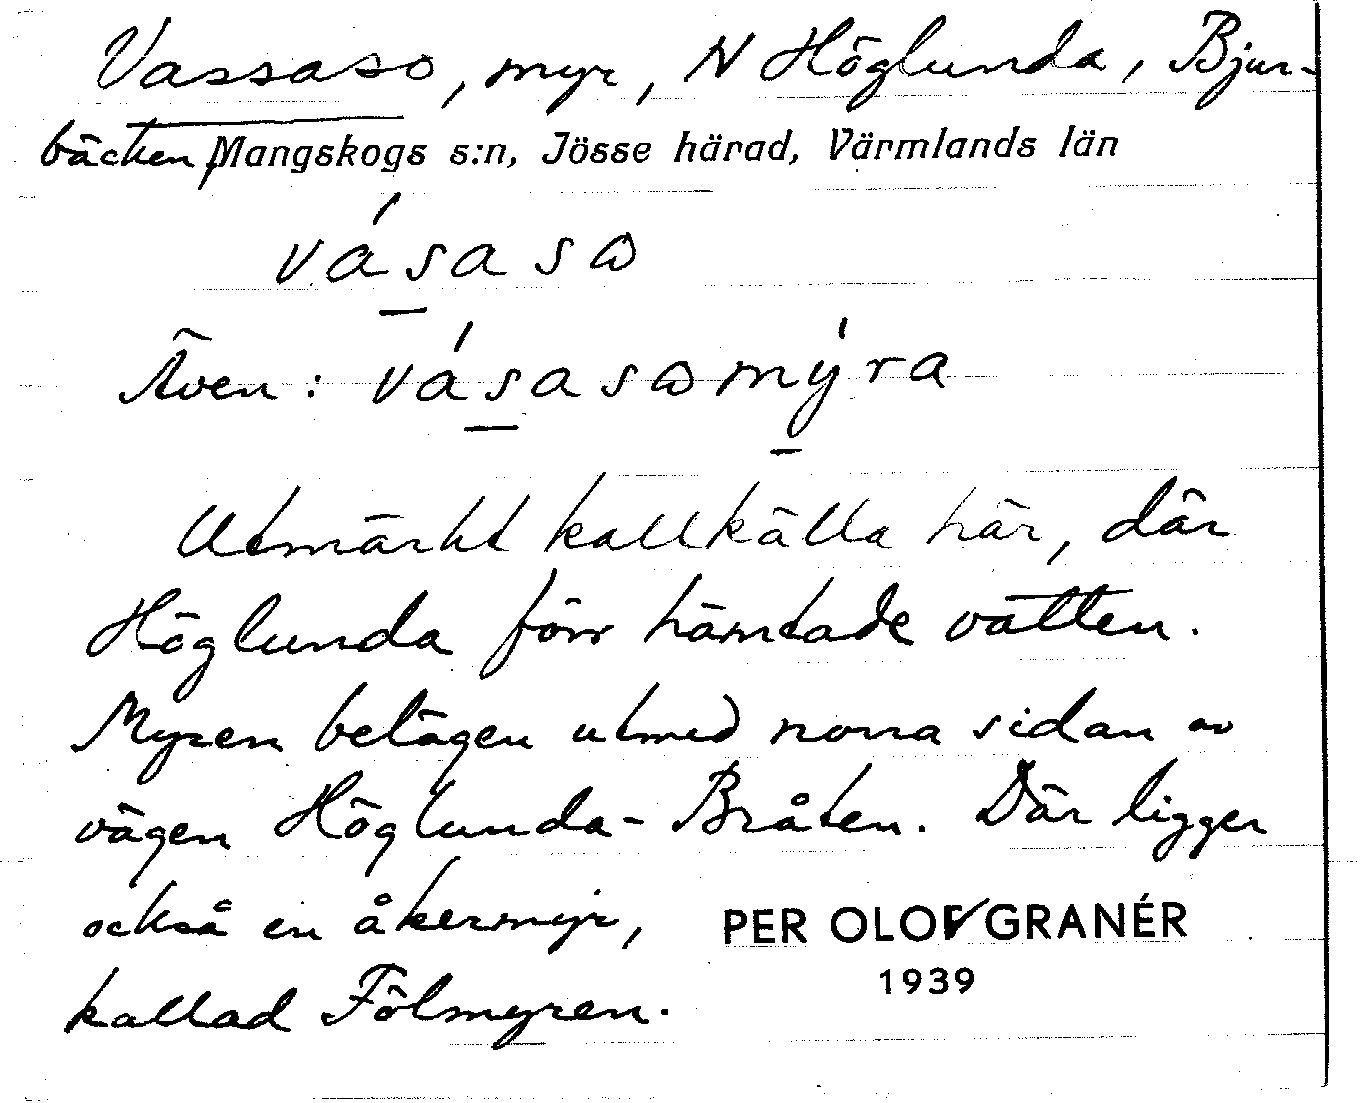 Vassaso, myr, N Höglunda, Bjur-
bäcken, Mangskogs s:n, Jösse härad, Värmlands län
vásasω
Även: vásasωmýra
Utmärkt kallkälla här, där
Höglunda förr hämtade vatten.
Myren belägen utmed norra sidan av
vägen Höglunda-Bråten. Där ligger
också en åkermyr,
kallad Fölmyren.
PER OLOF GRANÉR
1939